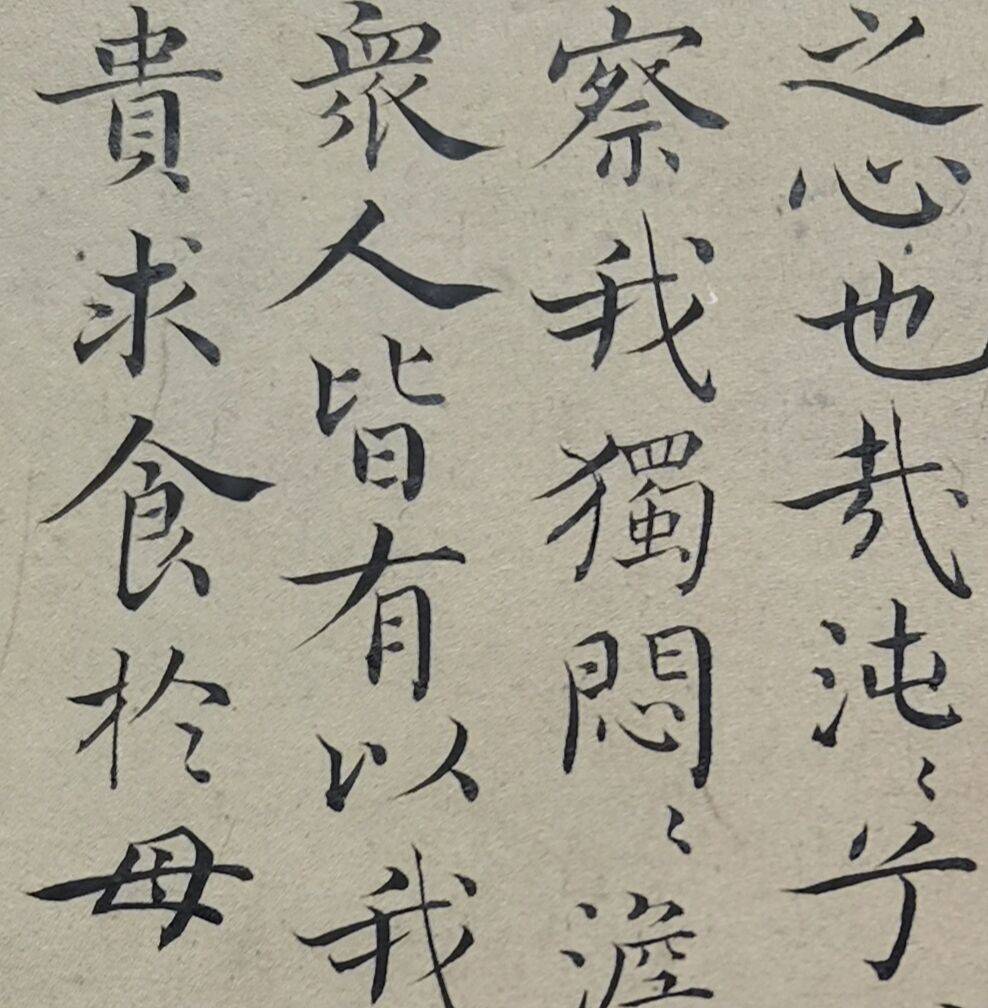 之心也哉沌〻兮
察我獨悶〻澹
衆人皆有以我
貴求食於母